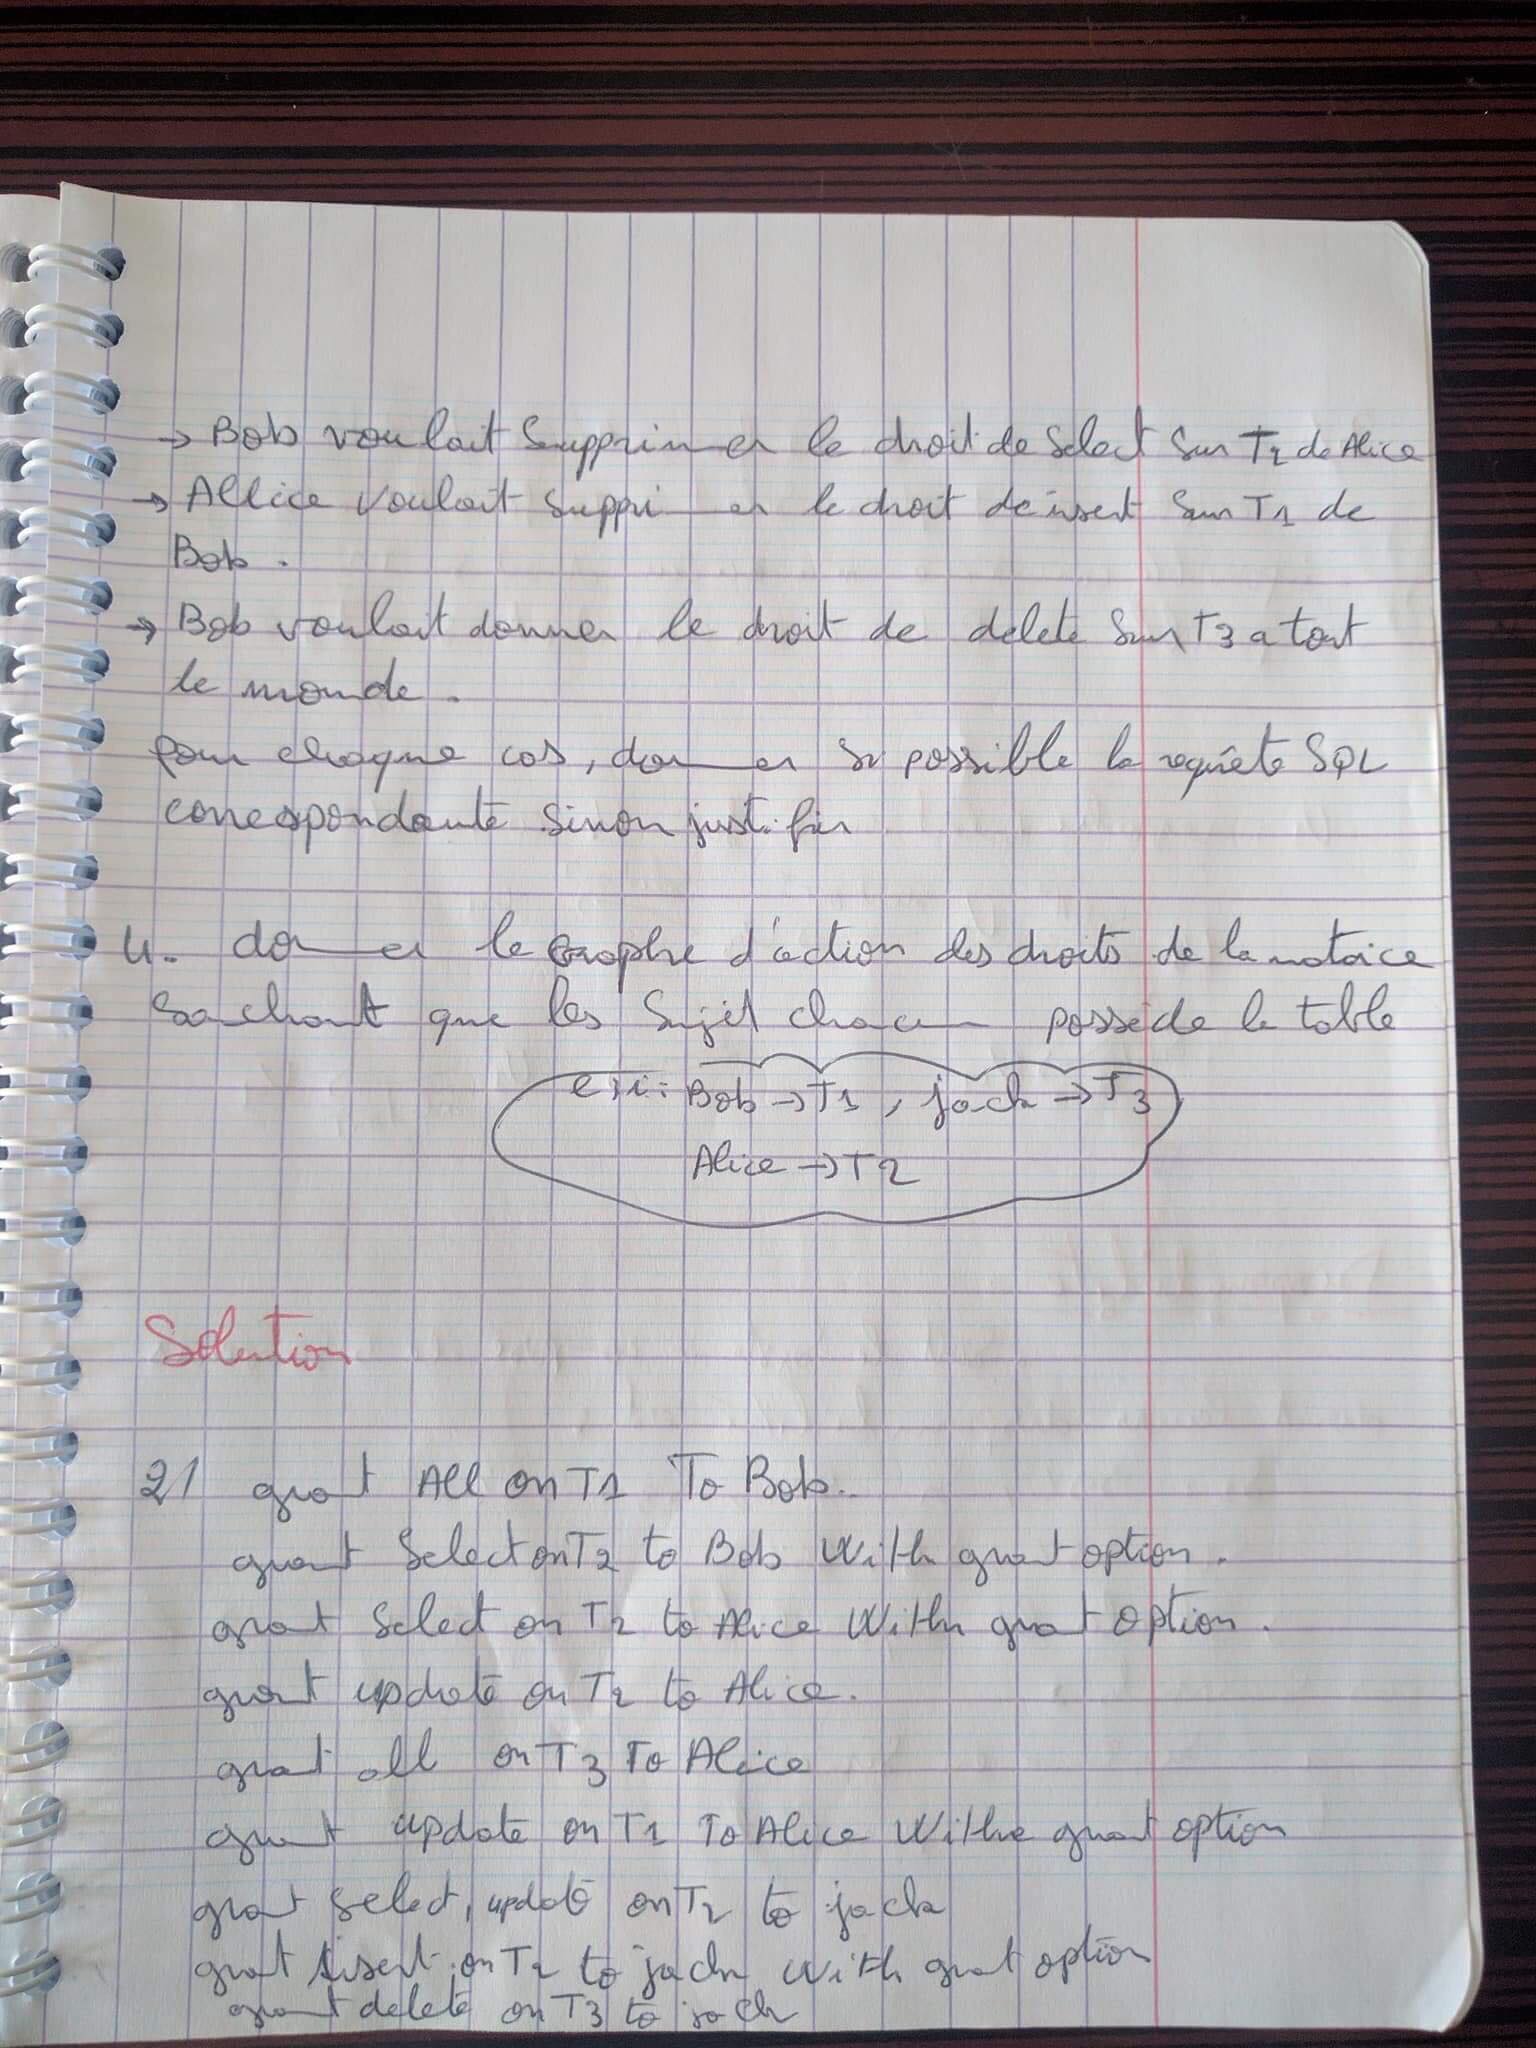 → Bob voulait supprimer le droit de select sur T2 de Alice
→ Allice voulait suppri er le droit de insert sur T1 de
Bob.
→ Bob voulait donner le droit de delete sur T3 a tout
le monde.
pour chaque cas, donner si possible la requête SQL
correspondante sinon justifier
4. donner le Graphe d'action des droits de la matrice
sachant que les sujet chacun possède la table
ex: Bob → T1, jack → T3
Alice → T2
Solution
2/ grant All on T1 To Bob.
grant Select on T2 to Bob With grant option.
grant Select on T2 to Alice With grant option.
grant update on T2 to Alice.
grant all on T3 To Alice
grant update on T1 To Alice Withe grant option
grant select, update on T2 to jack
grant insert on T2 to jack with grant option
grant delete on T3 to jack